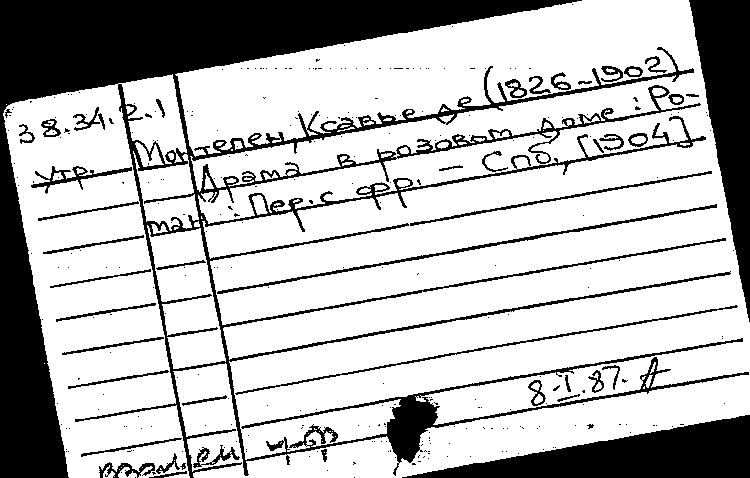 38.34.2.1
Монтепен, Ксавье де (1826-1902)
Утр.
Драма в розовом доме : Ро-
ман : Пер. с фр. — Спб., [1904]
8.I.87.
взам.